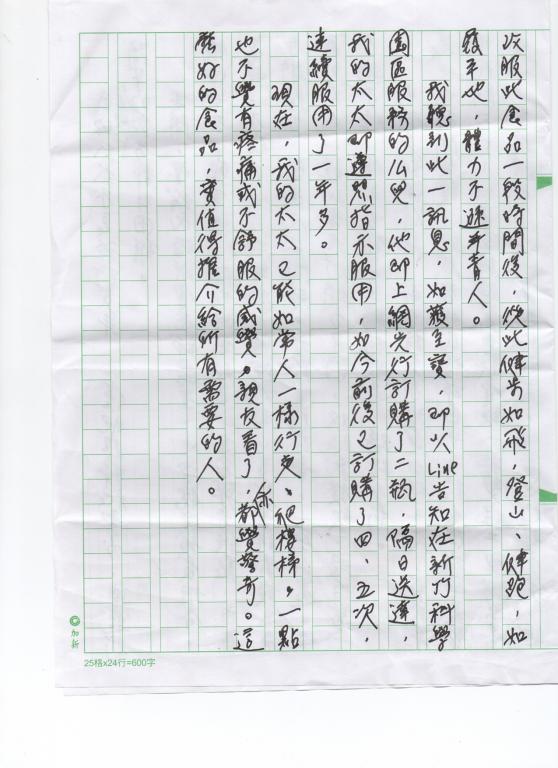 改服此食品一段時間後，從此健步如飛，登山、健跑，如
履平地，體力不遜年青人。
我聽到此一訊息，如獲至寶，即以Line告知在新竹科學
園區服務的么兒，他即上網先行訂購了二瓶，隔日送達，
我的太太即遵照指示服用，如今前後已訂購了四、五次，
連續服用了一年多。
現在，我的太太已能如常人一樣行走、爬樓梯。一點
也不覺有疼痛或不舒服的感覺。親友看了，亦都覺驚奇。這
麼好的食品，實值得推介給所有需要的人。
加新
25格x24行=600字